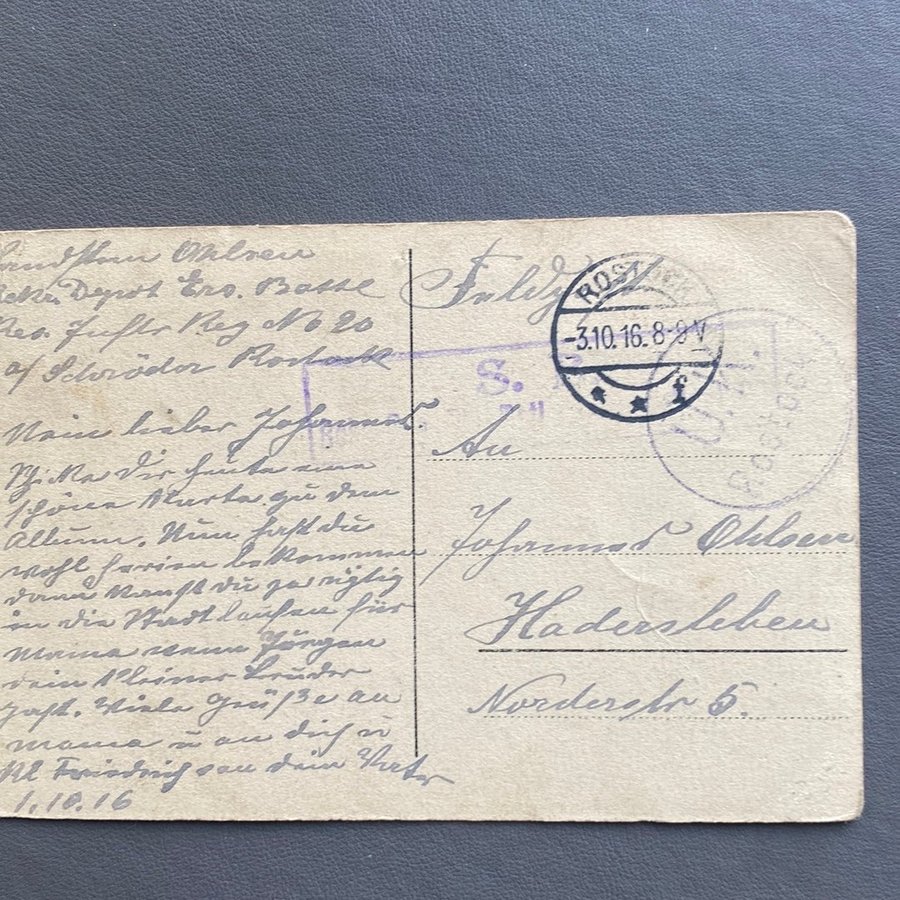 Landstm Ohlsen
Rekr. Depot Ers. Batl
Res. Inftr Reg No 20
a/ Schröder Rostock
Mein lieber Johannes.
Schicke Dir heute eine
schöne Karte zu dem
Album. Nun hast du
wohl Ferien bekommen
dann kanst du ja
in die Stadt laufen für
Mama wenn Jürgen
dein kleiner Bruder
Viele Grüße an
Mama u an dich u
Kl Friedrich von dein Vater
1.10.16
Feldp
ROSTOCK
-3.10.16.8-9V
* * f
S.
U.K.
Rostock
An
Johannes Ohlsen
Hadersleben
Norderstr 5.